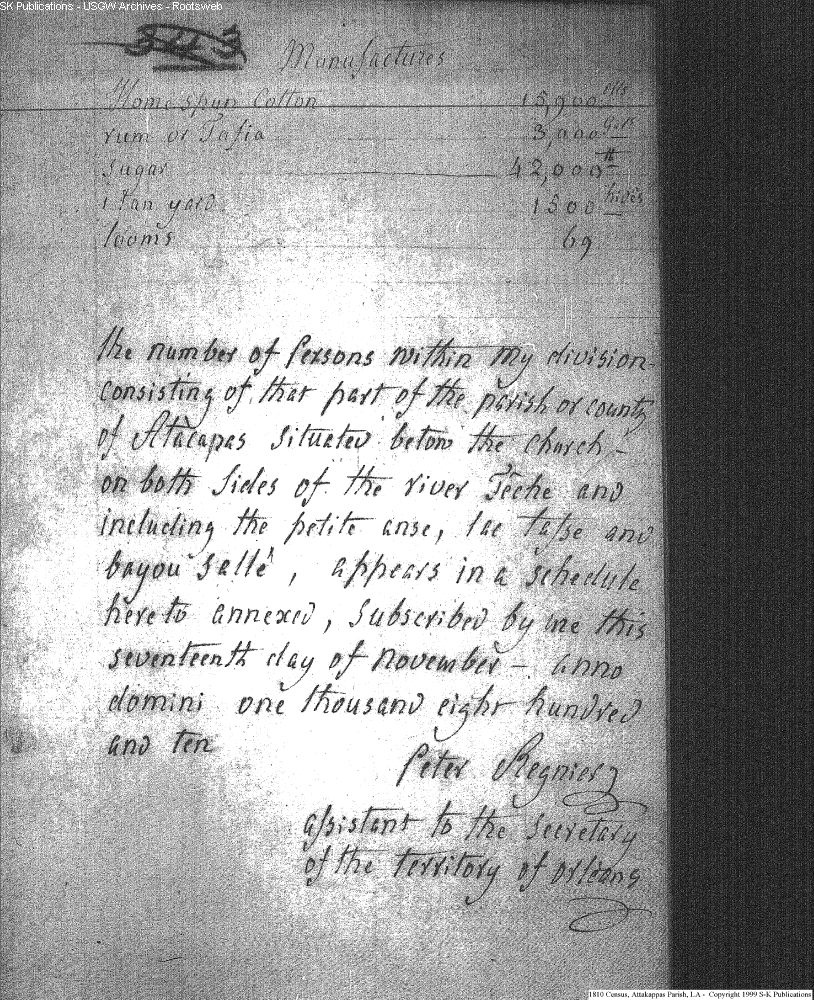 SK Publications - USGW Archives - Rootsweb
Manufactures
Homespun Cotton 15,900 ells
rum or Tafia 3,000 gals
sugar 42,000 ℔
1 tan yard 1500 hides
looms 69
the number of Persons within my division
consisting of that part of the parish or county
of Atacapas situated below the church –
on both sides of the river Têche and
including the petite anse, lac taſse and
bayou sallé, appears in a schedule
hereto annexed, subscribed by me this
seventeenth day of november – anno
domini one thousand eight hundred
and ten
Peter Regnier
aſsistant to the secretary
of the territory of orleans
1810 Census, Attakappas Parish, LA - Copyright 1999 S-K Publications